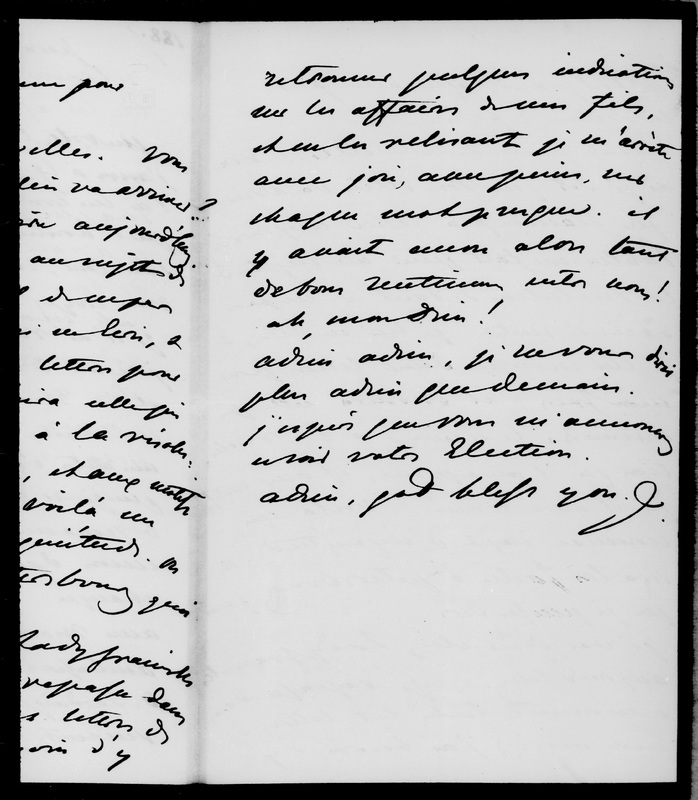 pour
elles. Vous
va arriver ?
aujourd'hui
au sujet de
loin, a
lettre pour
elle qui
à la résolu-
, et aux motifs
voilà un
quiétude. on
tersbourg qui
Lady Granville
repassé dans
s lettres de
oin d'y
retrouver quelques indications
sur les affaires de mes fils,
et en les relisant je m'arrête
avec joie, avec peine, sur
chaque mot presque. il
y avait encore alors tant
de bons sentimens entre nous!
ah, mon Dieu!
adieu adieu, je ne vous dirai
plus adieu que demain.
j'espère que vous m'annoncerez
ce soir votre Election.
adieu, god bless you.